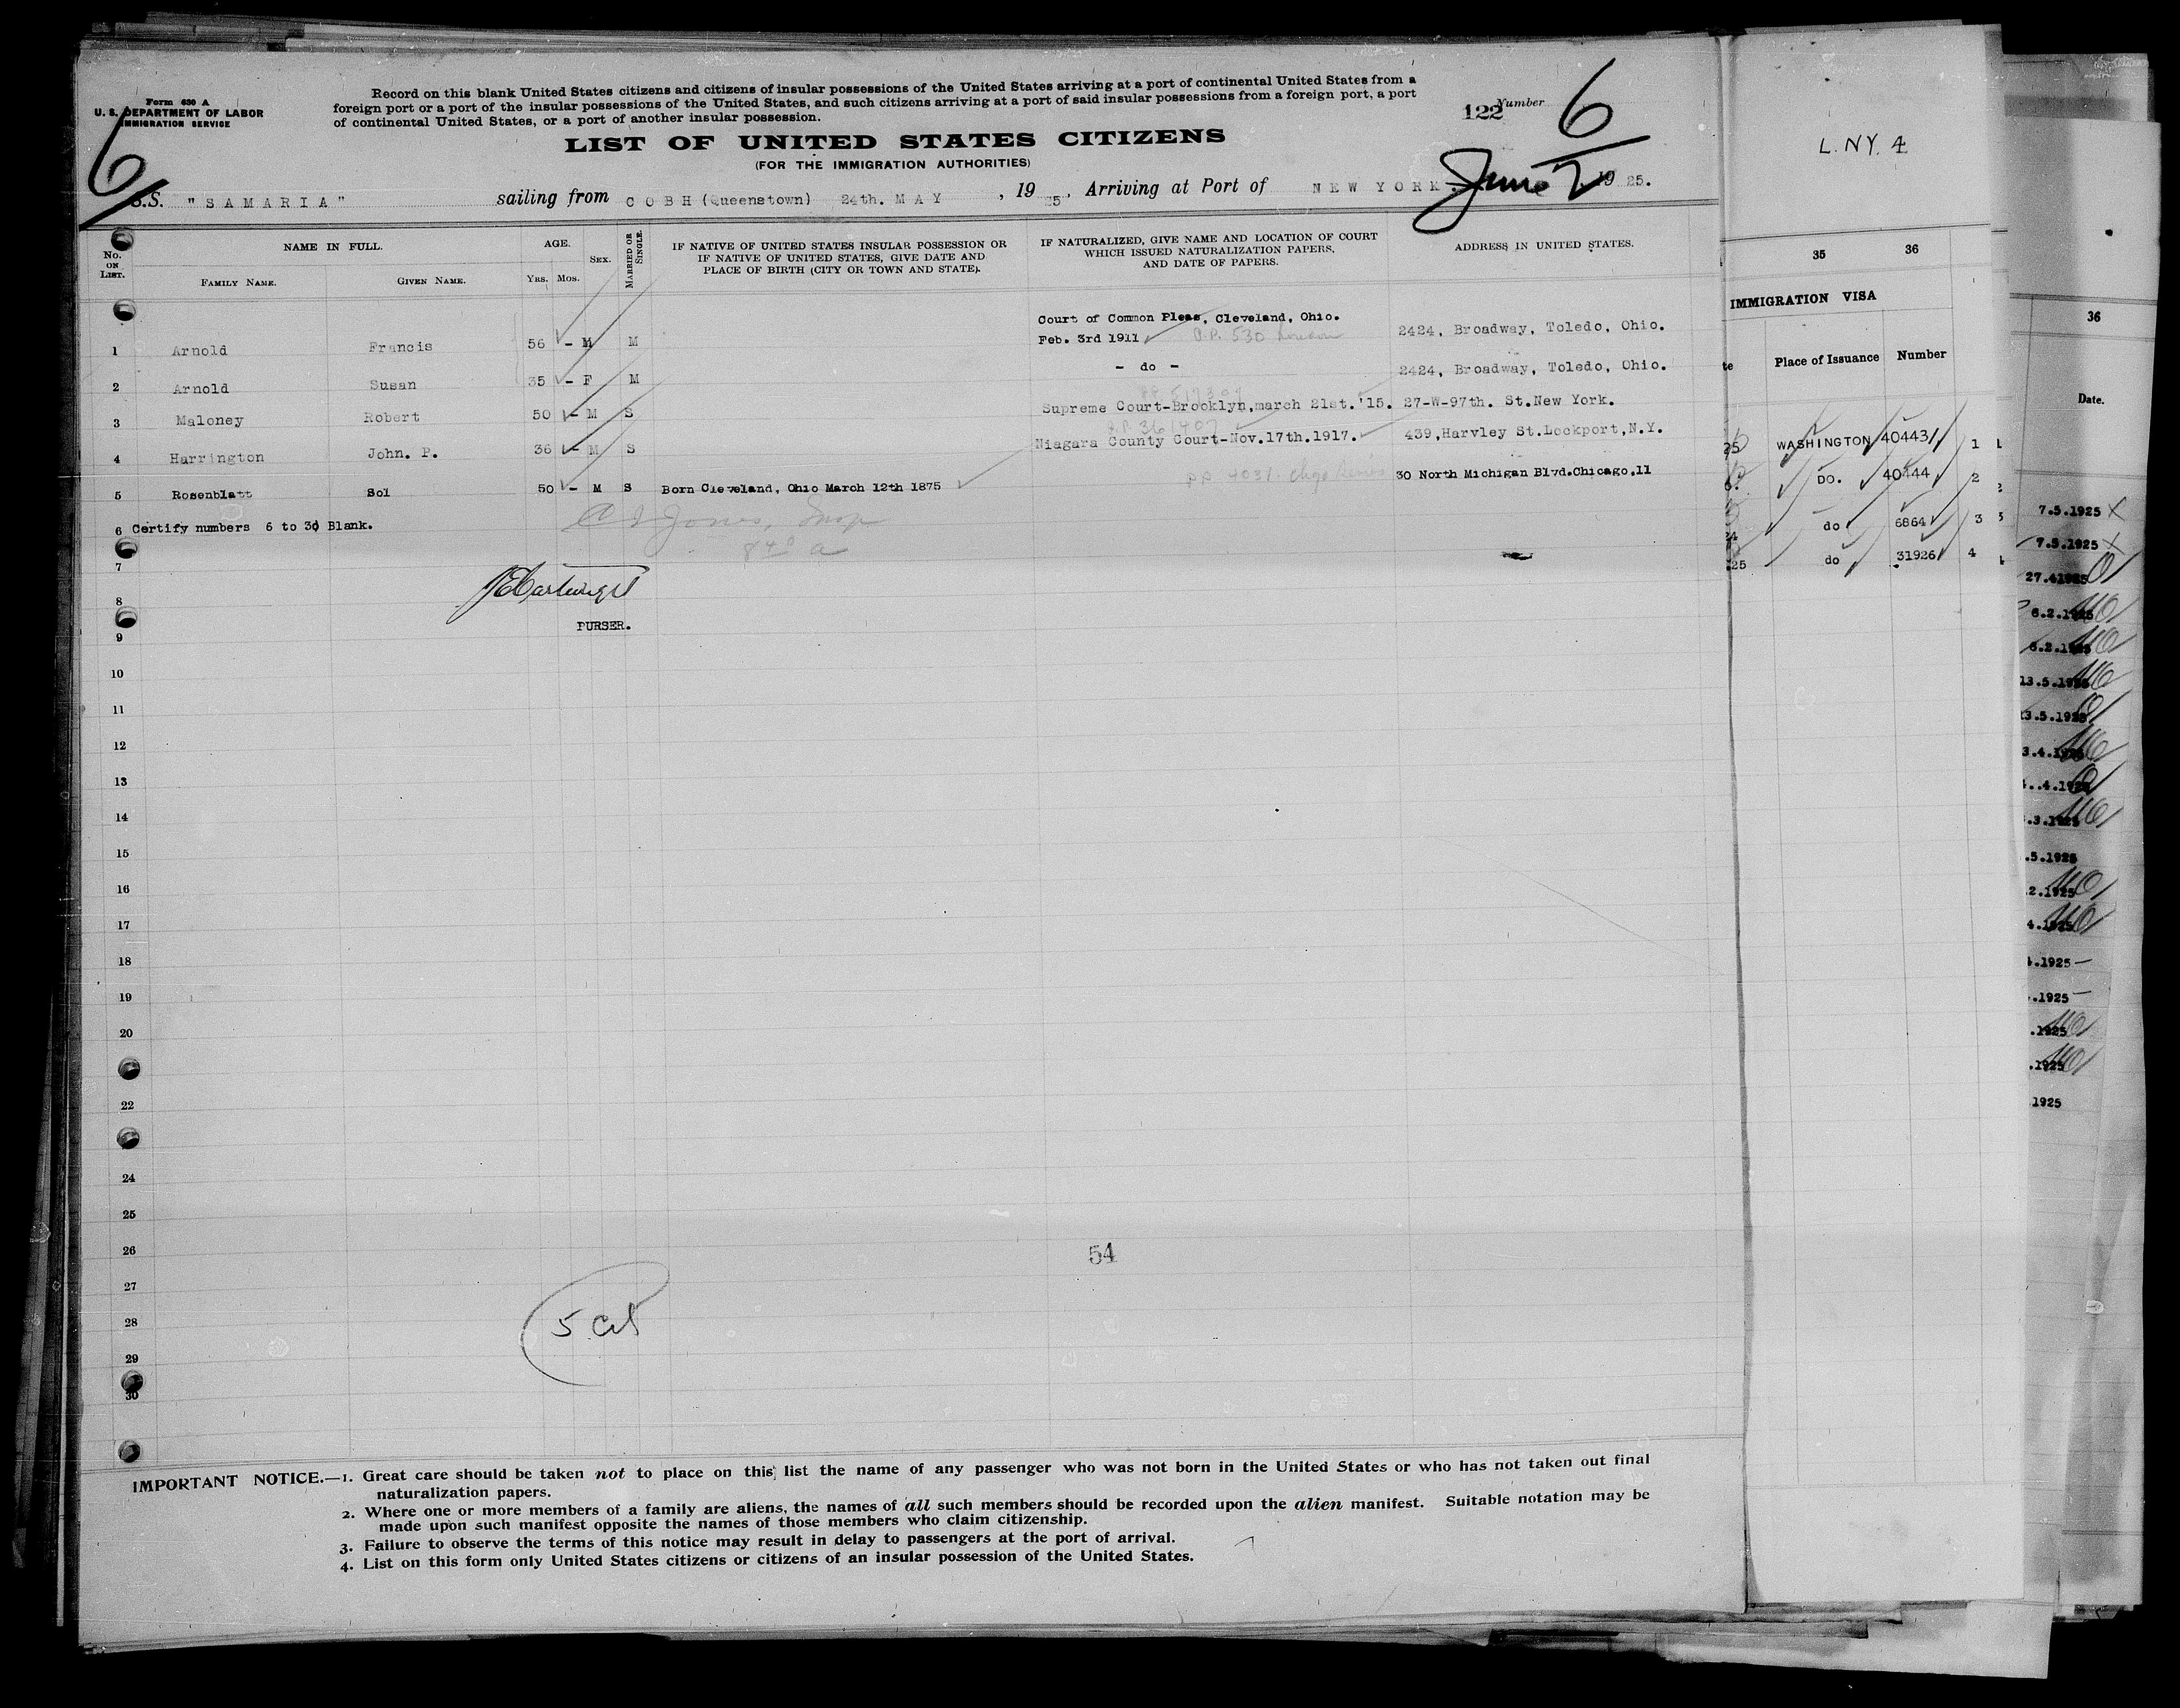 Form 630 A
U. S. DEPARTMENT OF LABOR
IMMIGRATION SERVICE
Record on this blank United States citizens and citizens of insular possessions of the United States arriving at a port of continental United States from a
foreign port or a port of the insular possessions of the United States, and such citizens arriving at a port of said insular possessions from a foreign port, a port
of continental United States, or a port of another insular possession.
122 Number 6
6
LIST OF UNITED STATES CITIZENS
(FOR THE IMMIGRATION AUTHORITIES)
S.S. "SAMARIA" sailing from COBH (Queenstown) 24th. MAY, 1925, Arriving at Port of NEW YORK. June 2 1925.
No. ON LIST.
NAME IN FULL.
FAMILY NAME. GIVEN NAME.
AGE.
YRS. MOS.
SEX.
MARRIED OR SINGLE.
IF NATIVE OF UNITED STATES INSULAR POSSESSION OR
IF NATIVE OF UNITED STATES, GIVE DATE AND
PLACE OF BIRTH (CITY OR TOWN AND STATE).
IF NATURALIZED, GIVE NAME AND LOCATION OF COURT
WHICH ISSUED NATURALIZATION PAPERS,
AND DATE OF PAPERS.
ADDRESS IN UNITED STATES.
Court of Common Pleas, Cleveland, Ohio.
1 Arnold Francis 56 - M M Feb. 3rd 1911 2424, Broadway, Toledo, Ohio.
2 Arnold Susan 35 - F M - do - 2424, Broadway, Toledo, Ohio.
3 Maloney Robert 50 - M S Supreme Court-Brooklyn,march 21st.'15. 27-W-97th. St.New York.
4 Harrington John. P. 36 - M S Niagara County Court-Nov.17th.1917. 439,Harvley St.Lockport,N.Y.
5 Rosenblatt Sol 50 - M S Born Cleveland, Ohio March 12th 1875 30 North Michigan Blvd.Chicago.Il
6 Certify numbers 6 to 30 Blank.
7
8
PURSER.
9
10
11
12
13
14
15
16
17
18
19
20
22
24
25
26
54
27
28
5
29
30
IMPORTANT NOTICE.—1. Great care should be taken not to place on this list the name of any passenger who was not born in the United States or who has not taken out final
naturalization papers.
2. Where one or more members of a family are aliens, the names of all such members should be recorded upon the alien manifest. Suitable notation may be
made upon such manifest opposite the names of those members who claim citizenship.
3. Failure to observe the terms of this notice may result in delay to passengers at the port of arrival.
4. List on this form only United States citizens or citizens of an insular possession of the United States.
L. NY. 4
35 36
IMMIGRATION VISA
Place of Issuance Number
WASHINGTON 40443 1
DO. 40444 2
do 6864 3
25 do 31926 4
36
Date.
7.5.1925
7.5.1925
27.4.1925
6.2.1925
6.2.1925
13.5.1925
3.5.1925
3.4.1925
.4.1925
.3.1925
.5.1925
.2.1925
4.1925
.1925
.1925
.1925
.1925
1925